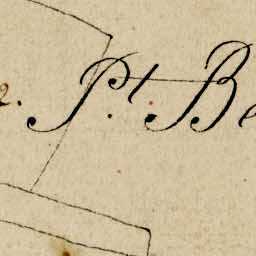 2. Pt. Be